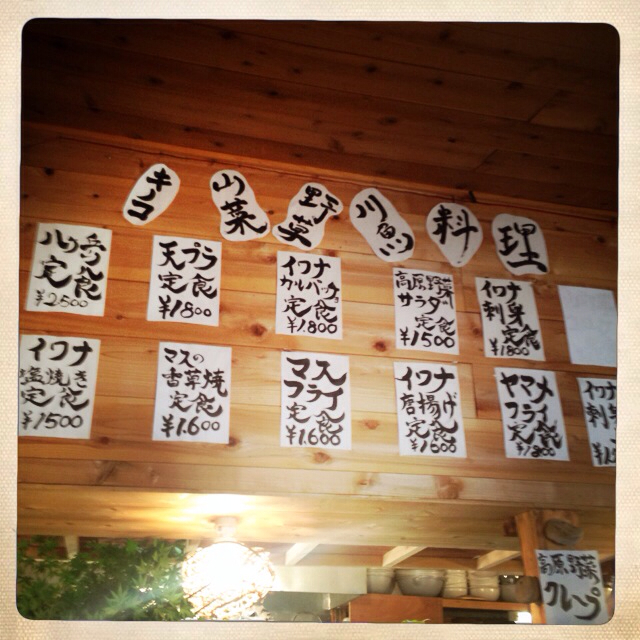 キノコ
山菜
野菜
川魚
料理
八ヶ岳
定食
¥2500
天プラ
定食
¥1800
イワナ
カルパッチョ
定食
¥1.800
高原野菜
サラダ
定食
¥1500
イワナ
刺身
定食
¥1800
イワナ
塩焼き
定食
¥1500
マスの
香草焼
定食
¥1.600
マス
フライ
定食
¥1.600
イワナ
唐揚げ
定食
¥1600
ヤマメ
フライ
定食
¥1800
イワナ
刺身
高原野菜
クレープ